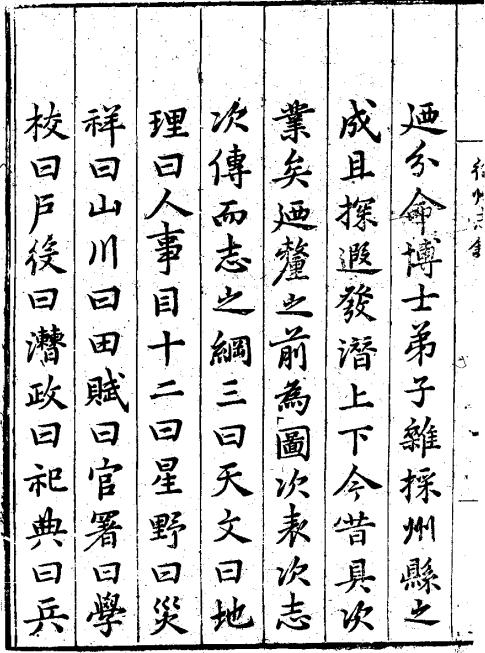 廼分命博士弟子雜採州縣之
成且探遐發潛上下今昔具次
業矣廼釐之前為圖次表次志
次傳而志之綱三曰天文曰地
理曰人事目十二曰星野曰災
祥曰山川曰田賦曰官署曰學
校曰戶役曰漕政曰祀典曰兵